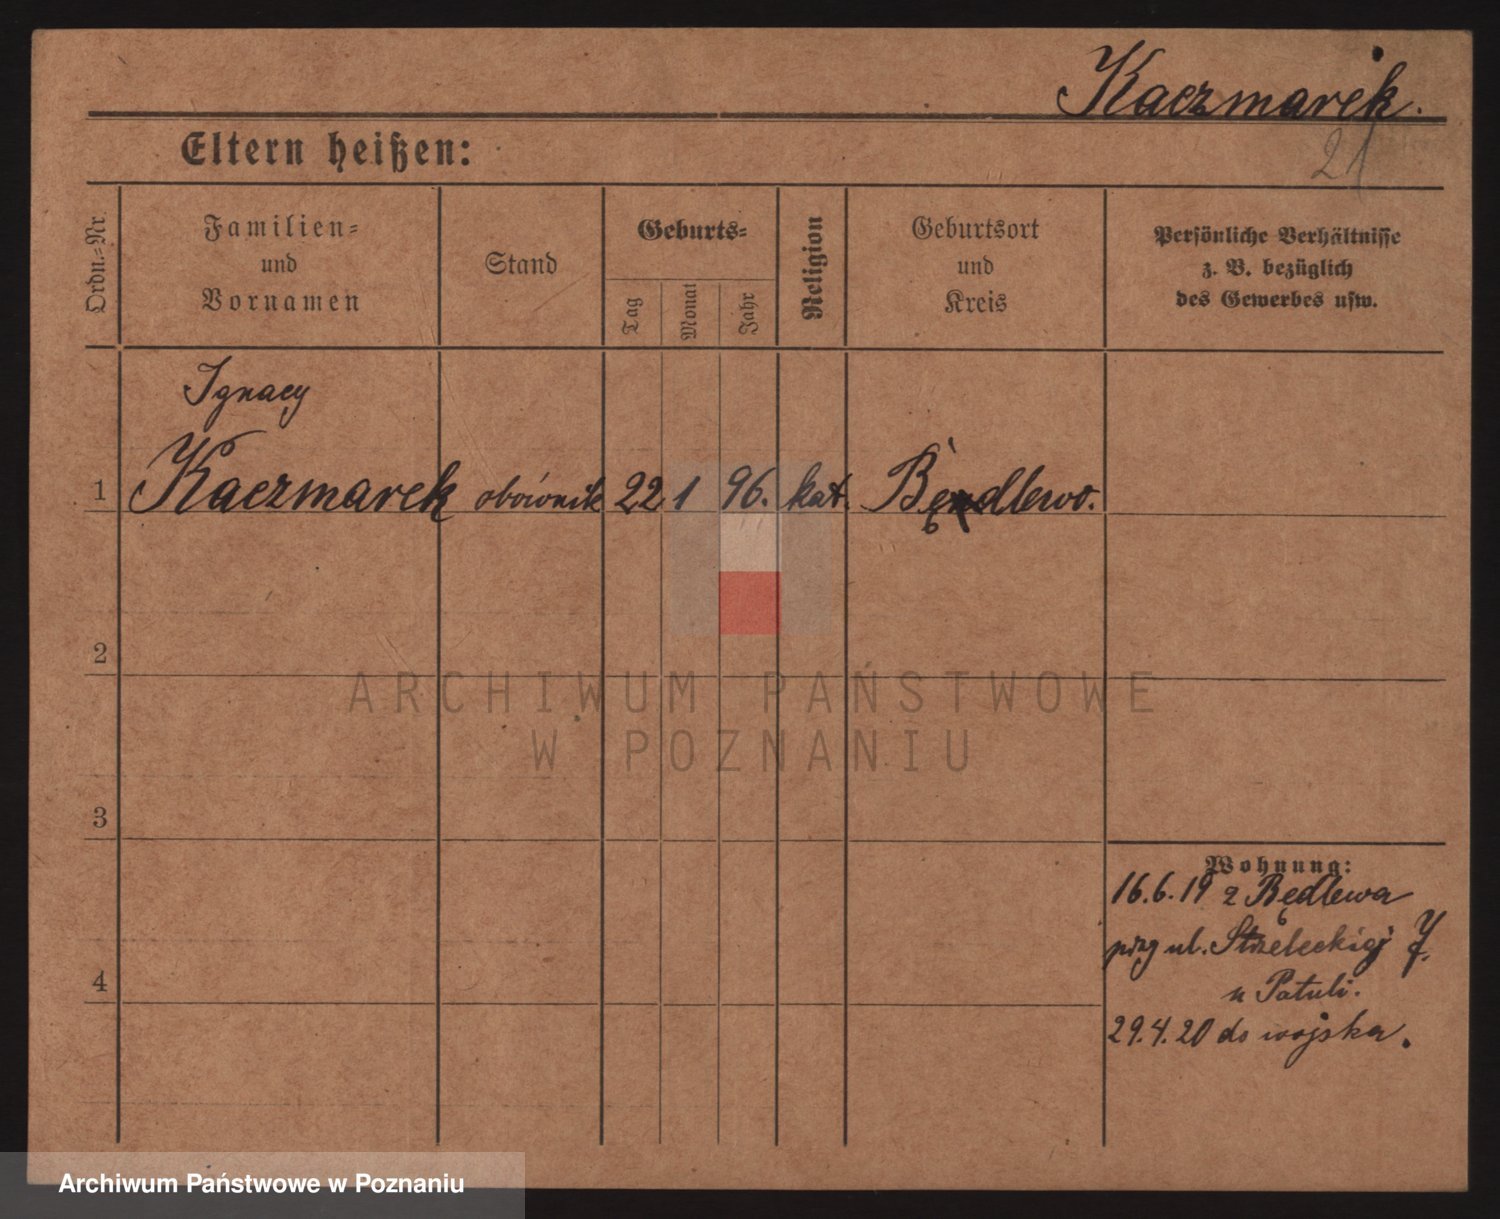 Kaczmarek.
21
Eltern heißen:
Ordn.-Nr.
Familien-
und
Vornamen
Stand
Geburts-
Tag
Monat
Jahr
Religion
Geburtsort
und
Kreis
Persönliche Verhältnisse
z. B. bezüglich
des Gewerbes usw.
Ignacy
1 Kaczmarek obównik 22 1 96. kat. Będlewo.
2
3
4
Wohnung:
16.6.19 z Będlewa
przy ul. Strzeleckiej
u Patuli.
29.4.20 do wojska.
ARCHIWUM PAŃSTWOWE
W POZNANIU
Archiwum Państwowe w Poznaniu